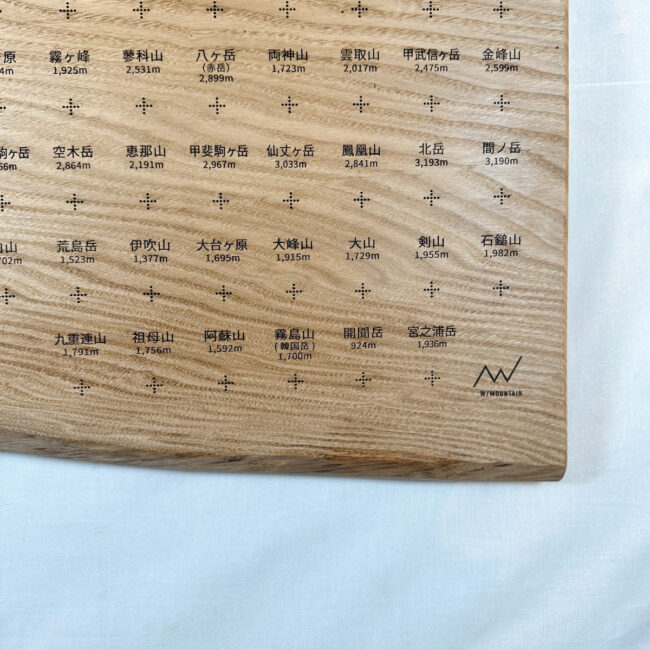 原 霧ヶ峰 蓼科山 八ヶ岳 両神山 雲取山 甲武信ヶ岳 金峰山
4m 1,925m 2,531m (赤岳) 1,723m 2,017m 2,475m 2,599m
2,899m
駒ヶ岳 空木岳 恵那山 甲斐駒ヶ岳 仙丈ヶ岳 鳳凰山 北岳 間ノ岳
56m 2,864m 2,191m 2,967m 3,033m 2,841m 3,193m 3,190m
山 荒島岳 伊吹山 大台ヶ原 大峰山 大山 剣山 石鎚山
702m 1,523m 1,377m 1,695m 1,915m 1,729m 1,955m 1,982m
九重連山 祖母山 阿蘇山 霧島山 開聞岳 宮之浦岳
1,791m 1,756m 1,592m (韓国岳) 924m 1,936m
1,700m
W/MOUNTAIN